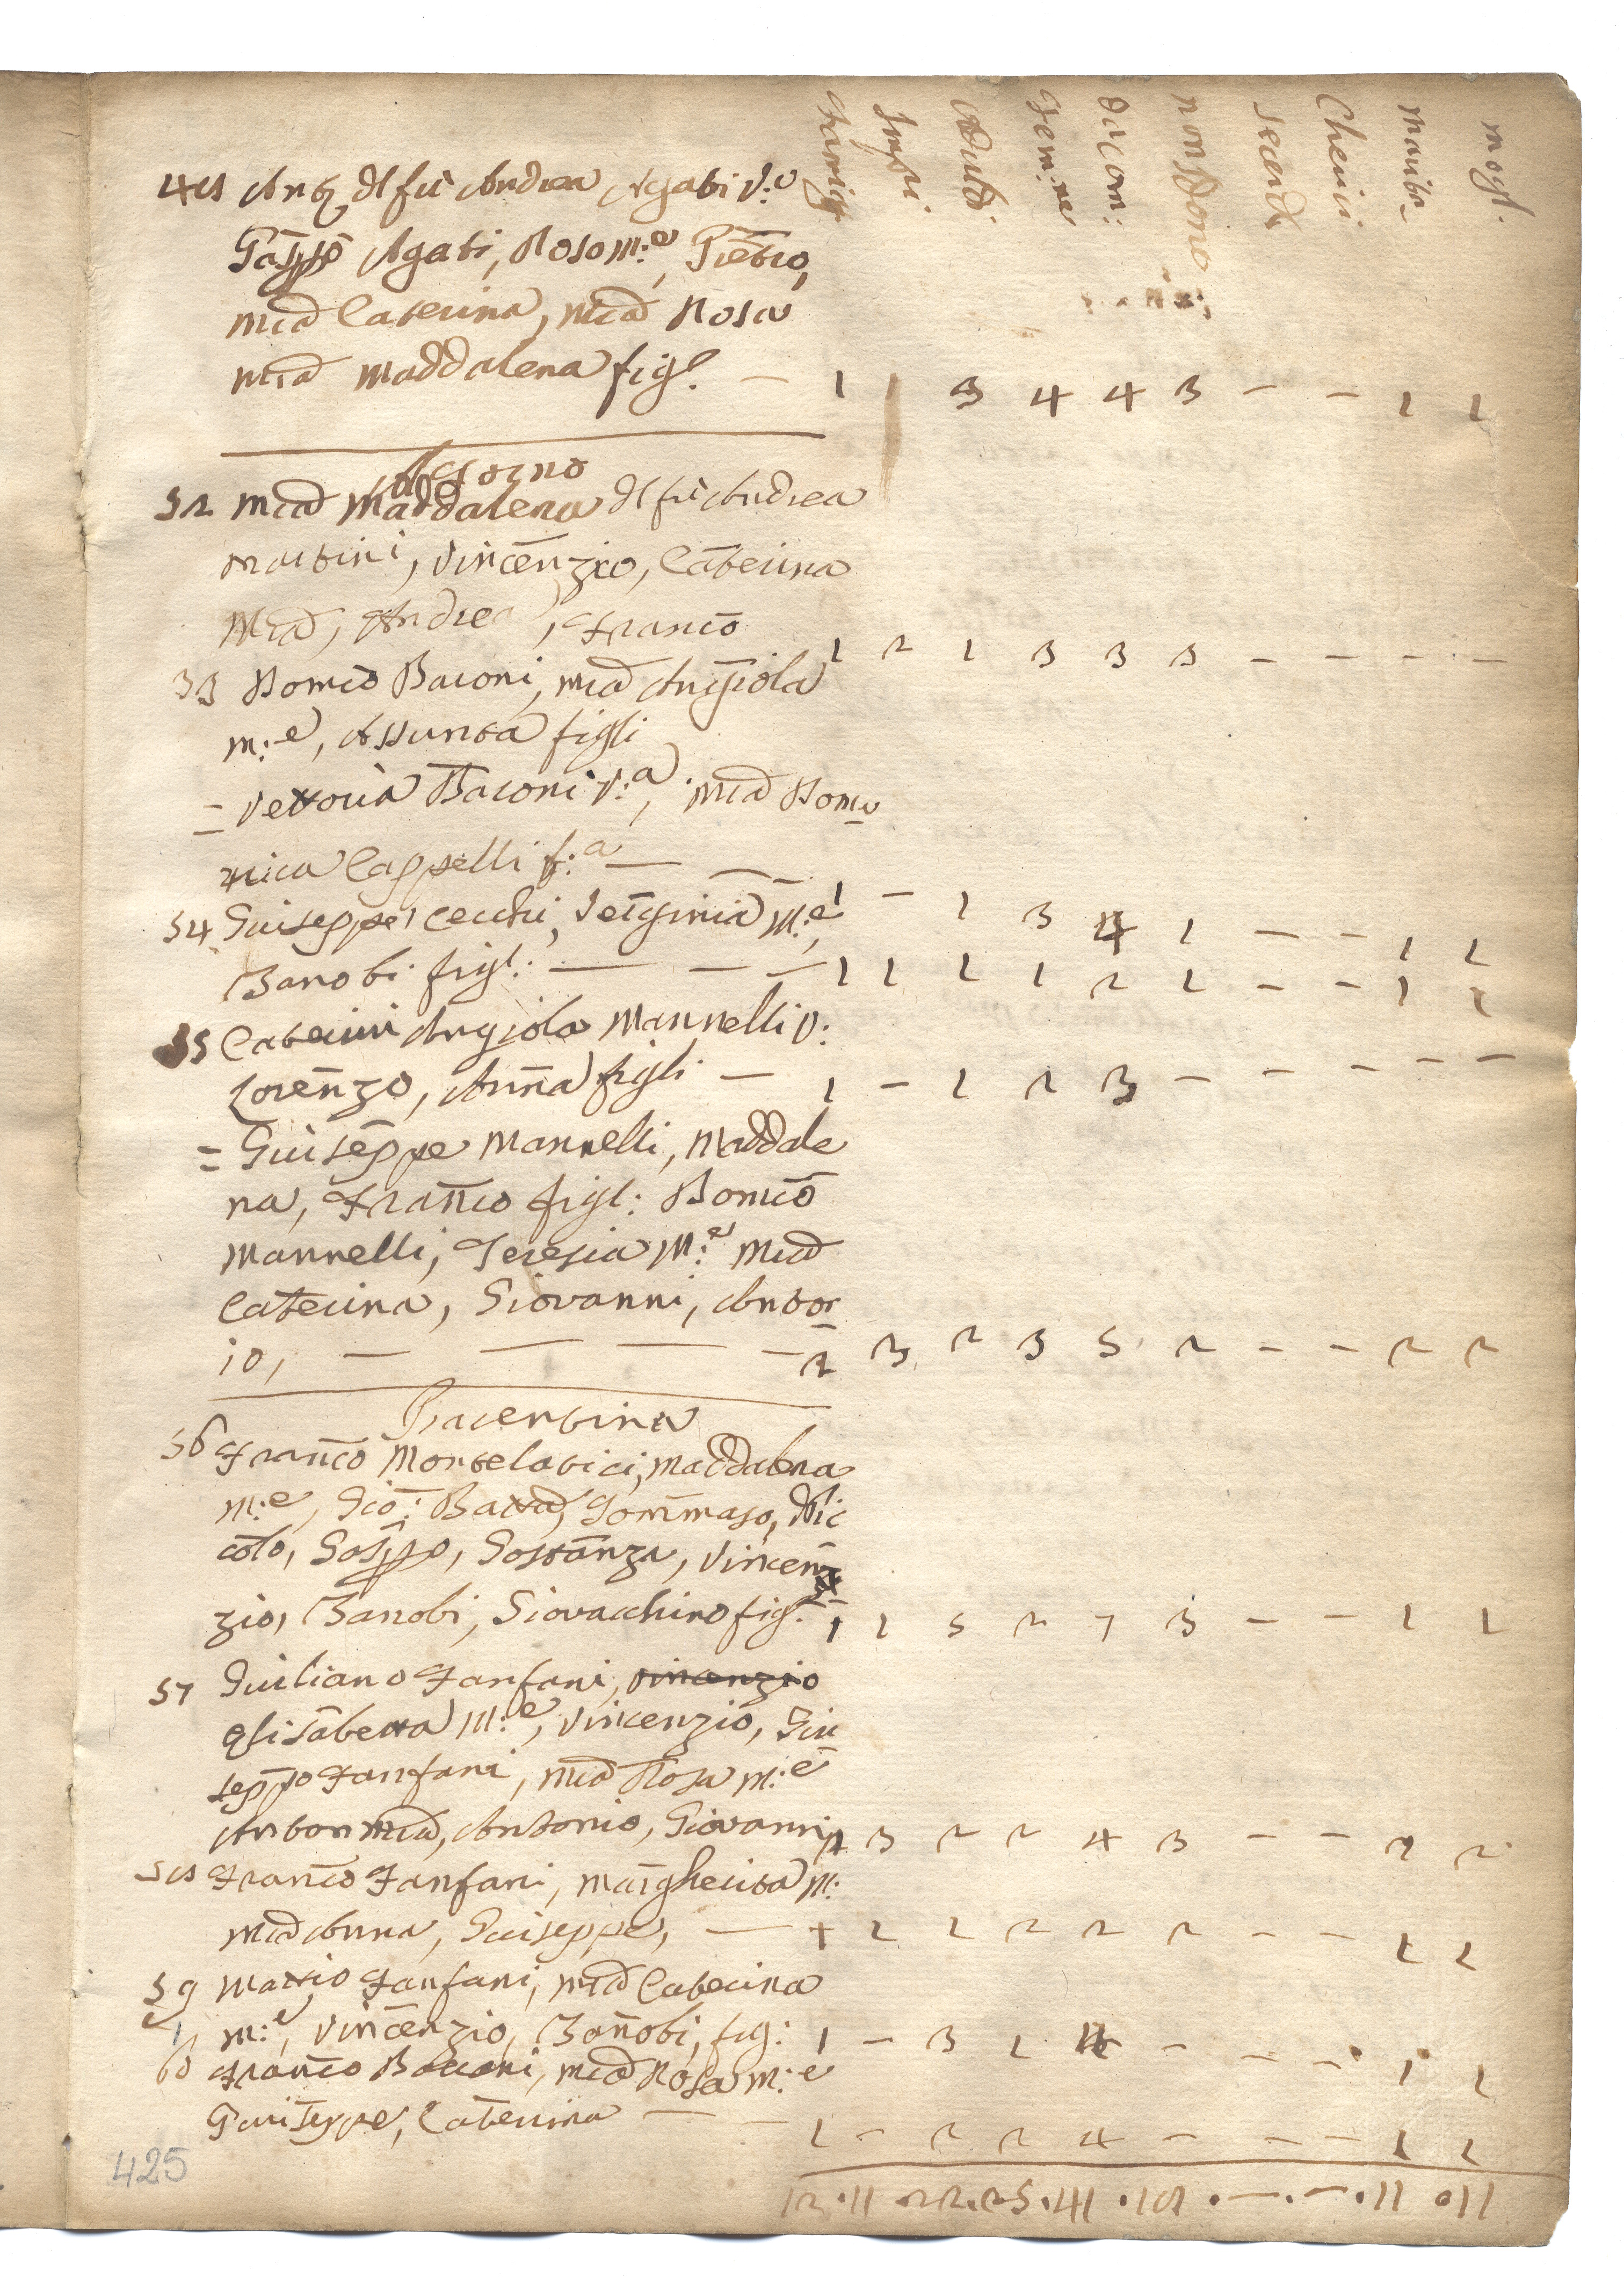 Famigl. Impu. Adulti Femine da com: non sono secerd. Cherici mariti mogl.
Ang. dl fù Andrea Agati V.a
Gasppo Agati, Rosa M:e, Pietro,
Mia Caterina, Mia Rosa
Mia Maddalena figl. — 1 1 3 4 4 3 — — 1 1
52 Mia Maddalena dl fù Andrea
Martini, Vincenzio, Caterina
Mia, Andrea, Franco 1 2 1 3 3 3 — — — —
53 Domco Baroni, Mia Angiola
m:e, Assunta figli
= Vettoria Baroni V:a, Mia Dome
nica Cappelli f:a — — 1 — 1 3 4 1 — — 1 1
54 Giuseppe Cecchi, Verginia M:e,
Zanobi figl: — — — 1 1 1 1 2 1 — — 1 1
55 Caterini Angiola Mannelli V:
Lorenzo, Anna figli — 1 — 1 2 3 — — — — —
= Giuseppe Mannelli, Maddale
na, Franco figl: Domco
Mannelli, Teresia M:e Mia
Caterina, Giovanni, Anton
io, — — — — 2 3 2 3 5 2 — — 2 2
Piacentina
56 Franco Mortelatici, Maddalena
M:e, Gio: Batta, Tommaso, Nic
colo, Gasppo, Gostanza, Vincen
zio, Zanobi, Giovacchino figl: 1 1 5 2 7 3 — — 1 1
57 Giuliano Fanfani, Vincenzio
Elisabetta M:e, Vincenzio, Giu
seppe Fanfani, Mia Rosa M:e
Anton Mia, Antonio, Giovanni 2 3 2 2 4 3 — — 2 2
58 Franco Fanfani, Margherita M:
Mia Anna, Giuseppe, — 1 2 2 2 2 2 — — 1 1
59 Mattio Fanfani, Mia Caterina
M:e, Vincenzio, Zanobi, fig: 1 — 3 1 4 — — — 1 1
60 Franco Baroni, Mia Rosa M:e
Giuseppe, Caterina — — 1 — 2 2 4 — — — 1 1
425